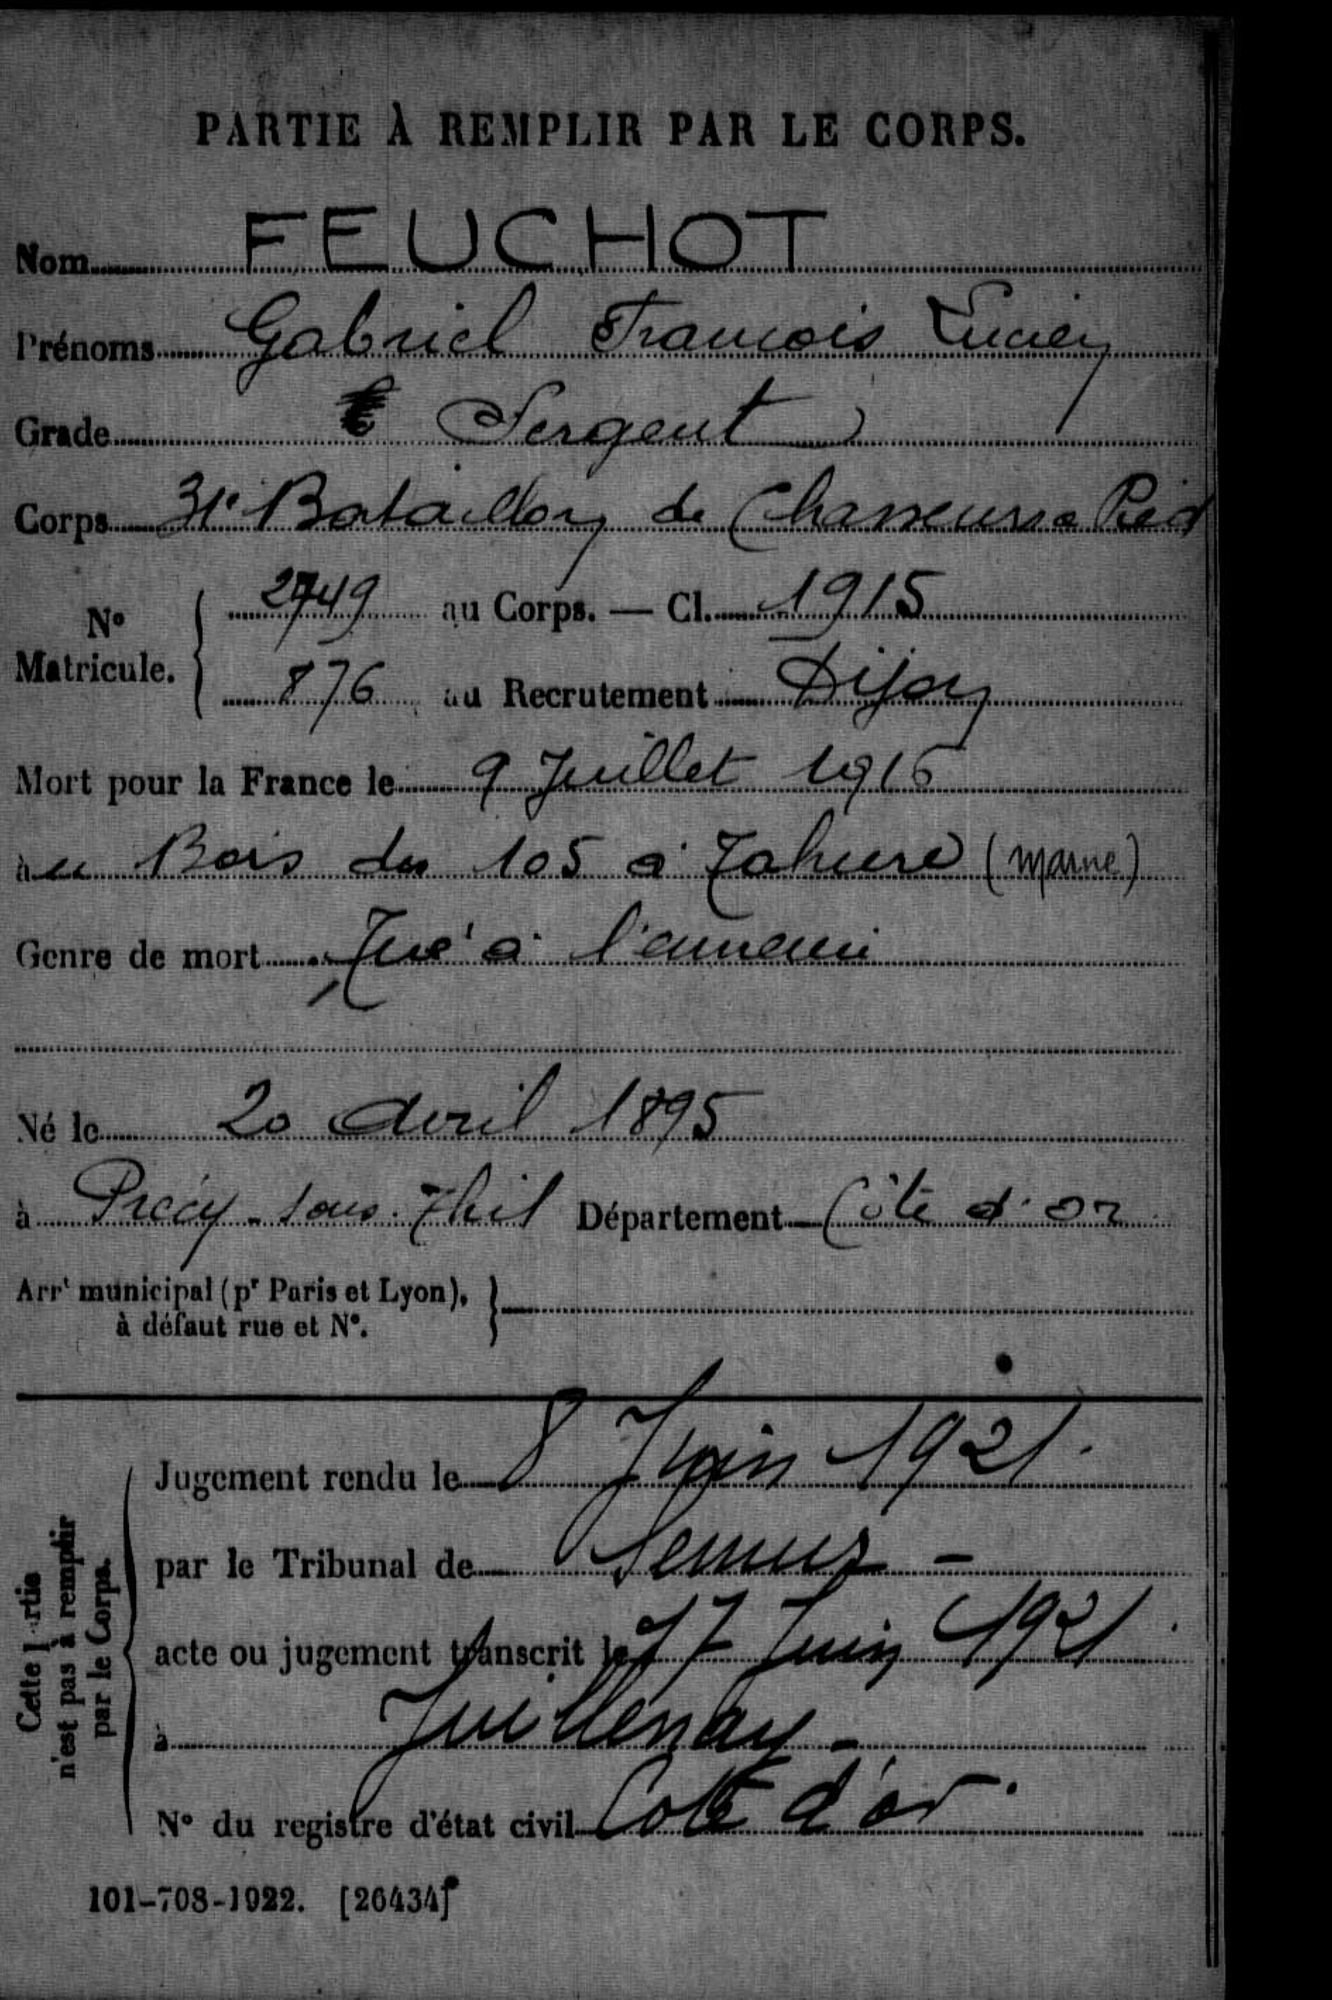 PARTIE À REMPLIR PAR LE CORPS.
Nom FEUCHOT
Prénoms Gabriel Francois Lucien
Grade Sergent
Corps 31e Bataillon de Chasseurs a Pied
N° Matricule. 2749 au Corps. — Cl. 1915
876 au Recrutement Dijon
Mort pour la France le 9 Juillet 1916
au Bois des 105 à Tahure (Marne)
Genre de mort Tué à l'ennemi
Né le 20 Avril 1895
à Précy-sous-Thil Département Côte d'or
Arrt municipal (pr Paris et Lyon),
à défaut rue et N°.
Cette Partie n'est pas à remplir par le Corps.
Jugement rendu le 8 Juin 1921.
par le Tribunal de Semur -
acte ou jugement transcrit le 17 Juin 1921
à Juillenay -
N° du registre d'état civil Cote d'or.
101-708-1922. [26434]